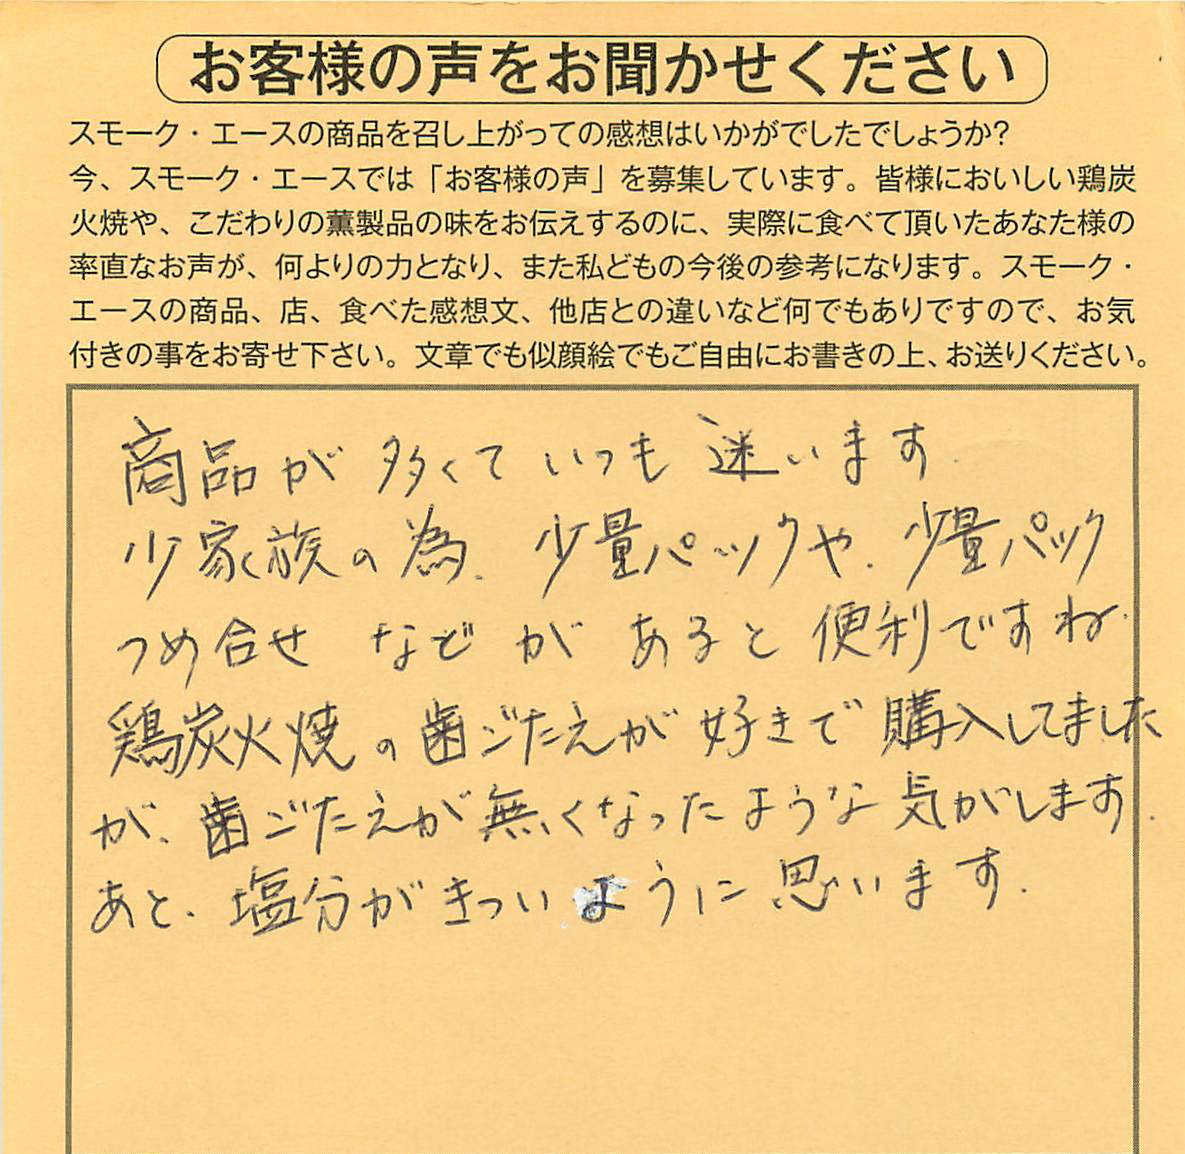 お客様の声をお聞かせください
スモーク・エースの商品を召し上がっての感想はいかがでしたでしょうか?
今、スモーク・エースでは「お客様の声」を募集しています。皆様においしい鶏炭
火焼や、こだわりの薫製品の味をお伝えするのに、実際に食べて頂いたあなた様の
率直なお声が、何よりの力となり、また私どもの今後の参考になります。スモーク・
エースの商品、店、食べた感想文、他店との違いなど何でもありですので、お気
付きの事をお寄せ下さい。文章でも似顔絵でもご自由にお書きの上、お送りください。
商品が多くていつも迷います.
少家族の為、少量パックや、少量パック
つめ合せなどがあると便利ですね.
鶏炭火焼の歯ごたえが好きで購入してました
が、歯ごたえが無くなったような気がします.
あと、塩分がきついように思います.